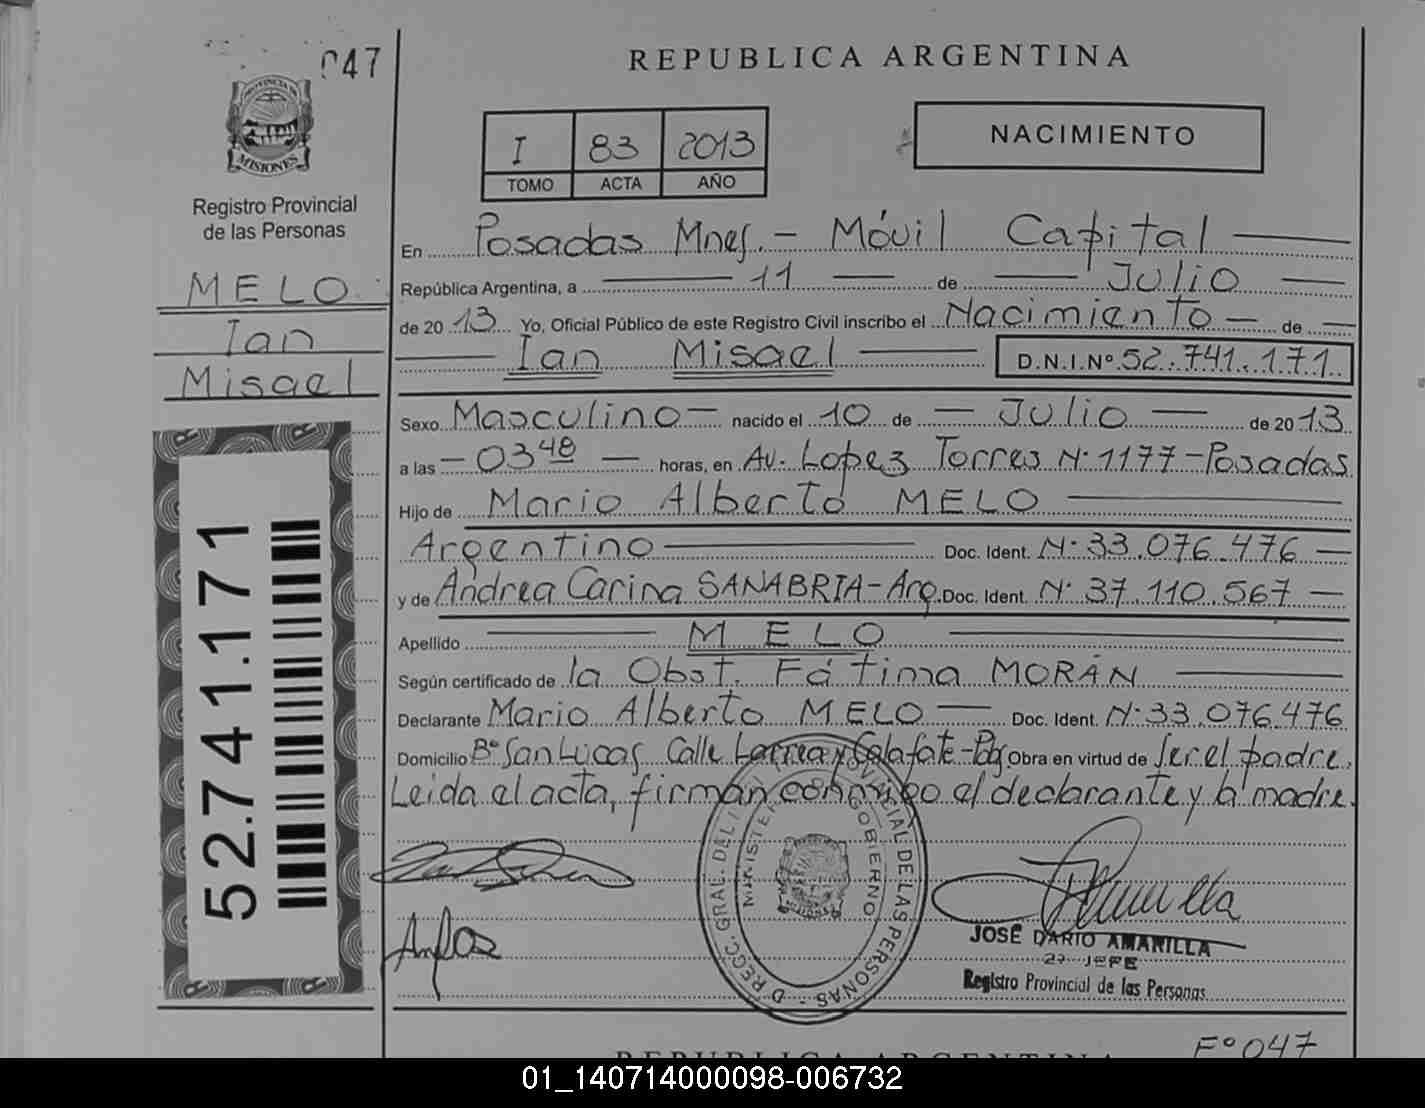 047
REPUBLICA ARGENTINA
PROVINCIA DE
MISIONES
Registro Provincial
de las Personas
MELO
Ian
Misael
52.741.171
I 83 2013
TOMO ACTA AÑO
NACIMIENTO
En Posadas Mnes. - Móvil Capital
República Argentina, a 11 de Julio
de 20 13 Yo, Oficial Público de este Registro Civil inscribo el Nacimiento de
Ian Misael D.N.I.Nº 52.741.171
Sexo Masculino nacido el 10 de Julio de 20 13
a las 03 48 horas, en Av. Lopez Torres N° 1177 - Posadas
Hijo de Mario Alberto MELO
Argentino Doc. Ident. N° 33.076.476
y de Andrea Carina SANABRIA - Arg. Doc. Ident. N° 37.110.567
Apellido MELO
Según certificado de la Obst. Fátima MORÁN
Declarante Mario Alberto MELO Doc. Ident. N° 33.076.476
Domicilio B° San Lucas Calle Larrea y Calafate - Pdas Obra en virtud de ser el padre.
Leida el acta, firman conmigo el declarante y la madre.
MINISTERIO GOBIERNO
JOSÉ DARIO AMARILLA
2º JEFE
Registro Provincial de las Personas
Fº 047
REPUBLICA ARGENTINA
01_140714000098-006732